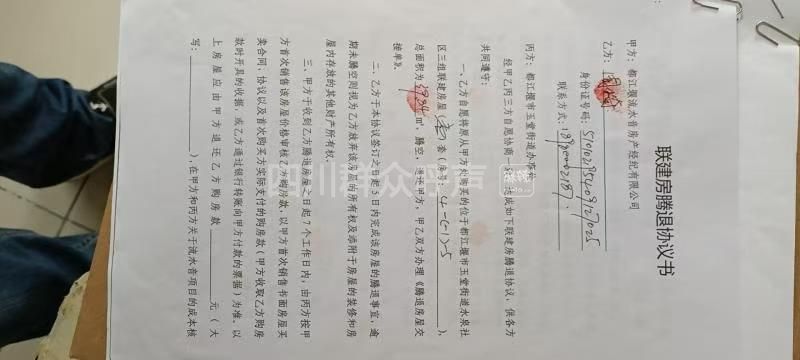 联建房腾退协议书
甲方：都江堰流水将房产经纪有限公司
乙方：
身份证号码：
联系方式：
丙方：都江堰市玉堂街道办事处
经甲乙丙三方自愿协商一致，达成如下联建房腾退协议，供各方
共同遵守：
一、乙方自愿将原从甲方处购买的位于都江堰市玉堂街道水泉社
区三组联建房屋（壹）套（房号：4-(-1)-5），
总面积为 m²，腾空，退还甲方，甲乙双方办理《腾退房屋交
接单》。
二、乙方于本协议签订之日起5日内完成该房屋的腾退事宜，逾
期未腾空则视为乙方放弃该房屋的所有权及添附于房屋的装修和房
屋内存放的其他财产所有权。
三、甲方于收到乙方腾退房屋之日起7个工作日内，由丙方按甲
方首次销售该房屋价格审核乙方购房款，以甲方首次销售书面房屋买
卖合同、协议以及首次购买方实际支付的购房款（甲方收取乙方购房
款时开具的收据，或乙方通过银行转账向甲方付款的票据）为准，以
上房屋应由甲方退还乙方购房款 元（大
写： ），在甲方和丙方关于流水音项目的成本核
四川群众呼声